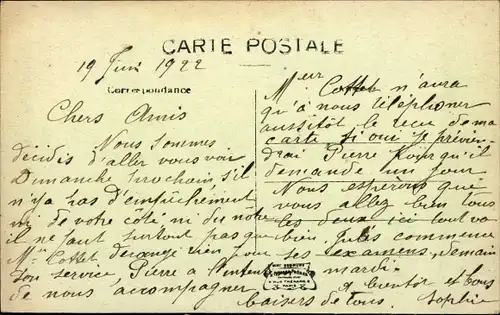 CARTE POSTALE
19 Juin 1922
Correspondance
Chers Amis
Nous sommes
décidés d'aller vous voir
Dimanche prochain, s'il
n'y a pas d'empêchement
ni de votre côté ni du notre
il ne faut surtout pas que
Mr Cottet derange rien pour
son service, Pierre a l'intention
de nous accompagner
Mr Cottet n'aura
qu'à nous téléphoner
aussitôt le reçu de ma
carte si oui je prévien-
drai Pierre pour qu'il
demande un jour
Nous esperons que
vous allez bien tous
les deux ici tout va
bien. Jules commence
ses examens demain
mardi.
A bientôt et bons
baisers de tous. Sophie